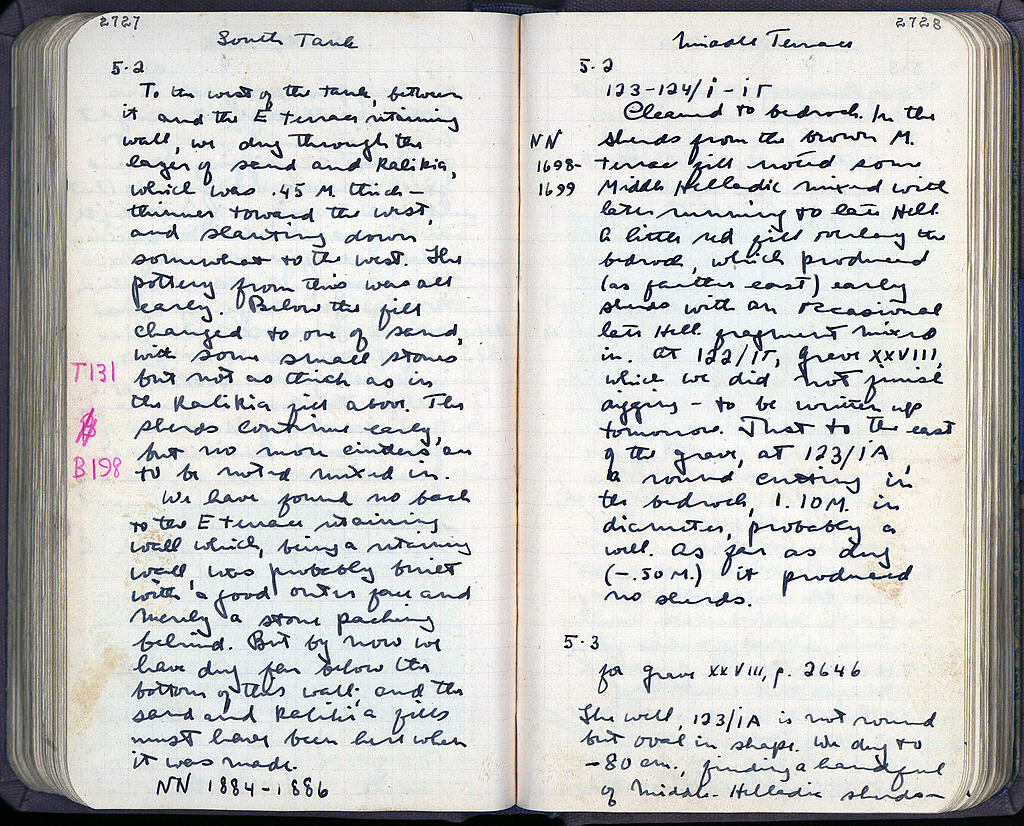 2727
South Tank
5.2
To the west of the tank, between
it and the E terrace retaining
wall, we dug through the
layer of sand and Kalikia,
which was .45 M. thick –
thinner toward the west,
and slanting down
somewhat to the west. The
pottery from this was all
early. Below the fill
changed to one of sand,
with some small stones
T131
but not as thick as in
the Kalikia fill above. The
sherds continue early,
B198
but no more cinders are
to be noted mixed in.
We have found no back
to the E terrace retaining
wall which, being a retaining
wall, was probably built
with a good outer face and
merely a stone packing
behind. But by now we
have dug far below the
bottom of this wall; and the
sand and Kalikia fills
must have been here when
it was made.
NN 1884-1886
2728
Middle Terrace
5.2
123-124/i-iΓ
Cleaned to bedrock. In the
NN
1698-
1699
sherds from the brown M.
terrace fill noted some
Middle Helladic mixed with
later running to late Hell.
A little red fill overlay the
bedrock, which produced
(as farther east) early
sherds with an occasional
late Hell. fragment mixed
in. At 122/iΓ, grave XXVIII,
which we did not finish
digging – to be written up
tomorrow. Just to the east
of the grave, at 123/iA,
a round cutting in
the bedrock, 1.10 M. in
diameter, probably a
well. As far as dug
(-.50 M.) it produced
no sherds.
5.3
for grave XXVIII, p. 2646
The well, 123/iA is not round
but oval in shape. We dug to
-80 cm., finding a handful
of Middle Helladic sherds –